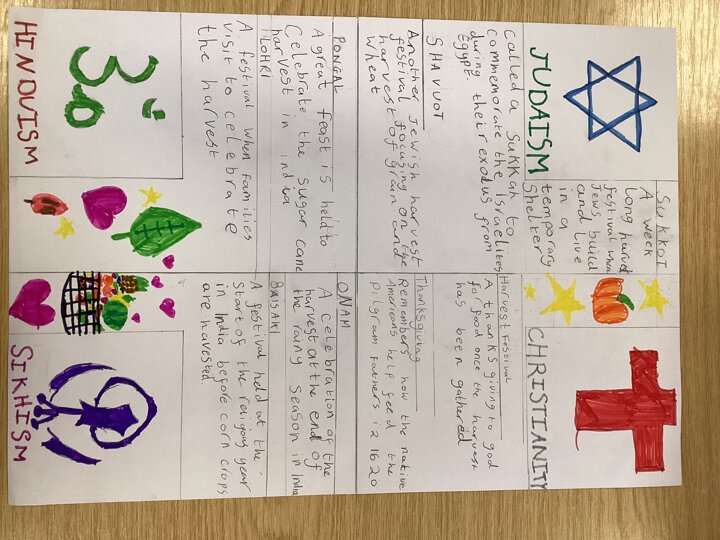 JUDAISM
SukkoT
A week
long harvest
festival when
Jews build
and live
in a
temporary
Shelter
called a sukkah to
commemorate the Israelites
during their exodus from
EGYPT.
SHAVUOT
Another Jewish harvest
festival focusing on the
harvest of grain and
wheat
CHRISTIANITY
Harvest Festival
A thanks giving to god
for good once the harvest
has been gathered
Thanksgiving
Remembers how the native
Americans help feed the
Pilgram fathers in 1620
PONGAL
A great feast is held to
Celebrate the sugar cane
harvest in india
LOHRI
A festival when families
visit to celebrate
the harvest
HINDUISM
ONAM
A celebration of the
harvest at the end of
the rainy season in India
BAISAKI
A festival held at the
start of the religous year
in India before corn crops
are havested.
SIKHISM